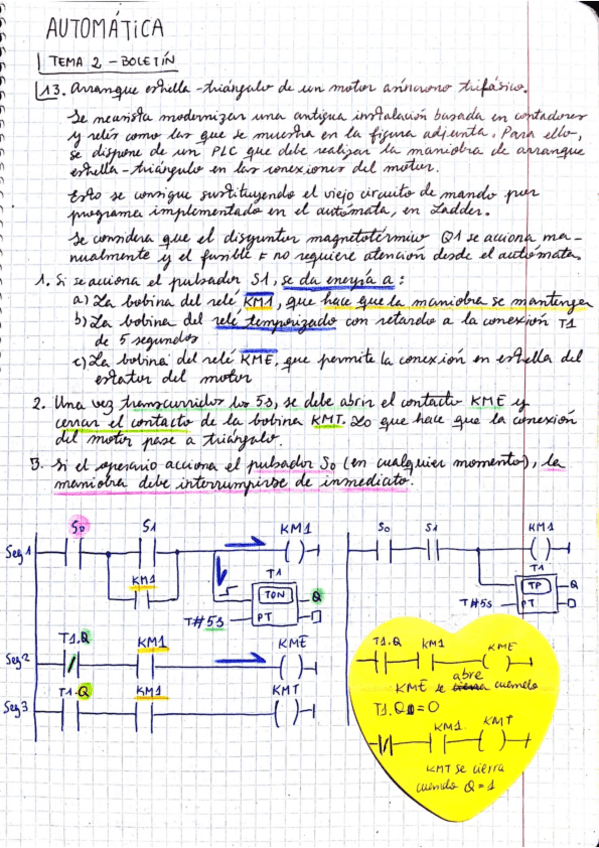 AUTOMÁTICA
TEMA 2 - BOLETÍN
13. Arranque estrella-triángulo de un motor asíncrono trifásico.
Se necesita modernizar una antigua instalación basada en contadores
y relés como las que se muestra en la figura adjunta. Para ello,
se dispone de un PLC que debe realizar la maniobra de arranque
estrella-triángulo en las conexiones del motor.
Esto se consigue sustituyendo el viejo circuito de mando por
programa implementado en el autómata, en Ladder.
Se considera que el disyuntor magnetotérmico Q1 se acciona ma-
nualmente y el fusible F no requiere atención desde el autómata.
1. Si se acciona el pulsador S1, se da energía a:
a) La bobina del relé KM1, que hace que la maniobra se mantenga
b) La bobina del relé temporizado con retardo a la conexión T1
de 5 segundos
c) La bobina del relé KME, que permite la conexión en estrella del
estator del motor
2. Una vez transcurridos los 5s, se debe abrir el contacto KME y
cerrar el contacto de la bobina KMT. Lo que hace que la conexión
del motor pase a triángulo.
3. Si el operario acciona el pulsador S0 (en cualquier momento), la
maniobra debe interrumpirse de inmediato.
S0 S1 KM1
Seg 1
KM1
T1
TON Q
T#5s PT
T1.Q KM1 KME
Seg 2
T1.Q KM1 KMT
Seg 3
S0 S1 KM1
T1
TP Q
T#5s PT
T1.Q KM1 KME
abre
KME se cierra cuando
T1.Q = 0
KM1 KMT
KMT se cierra
cuando Q = 1